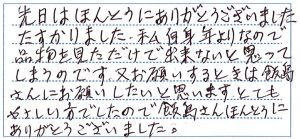 先日はほんとうにありがとうございました
たすかりました。私何身年よりなので
品物を見ただけで出来ないと思って
しまうのです。又お願いするときは飯島
さんにお願いしたいと思いますとても
やさしい方でしたので飯島さんほんとうに
ありがとうございました。